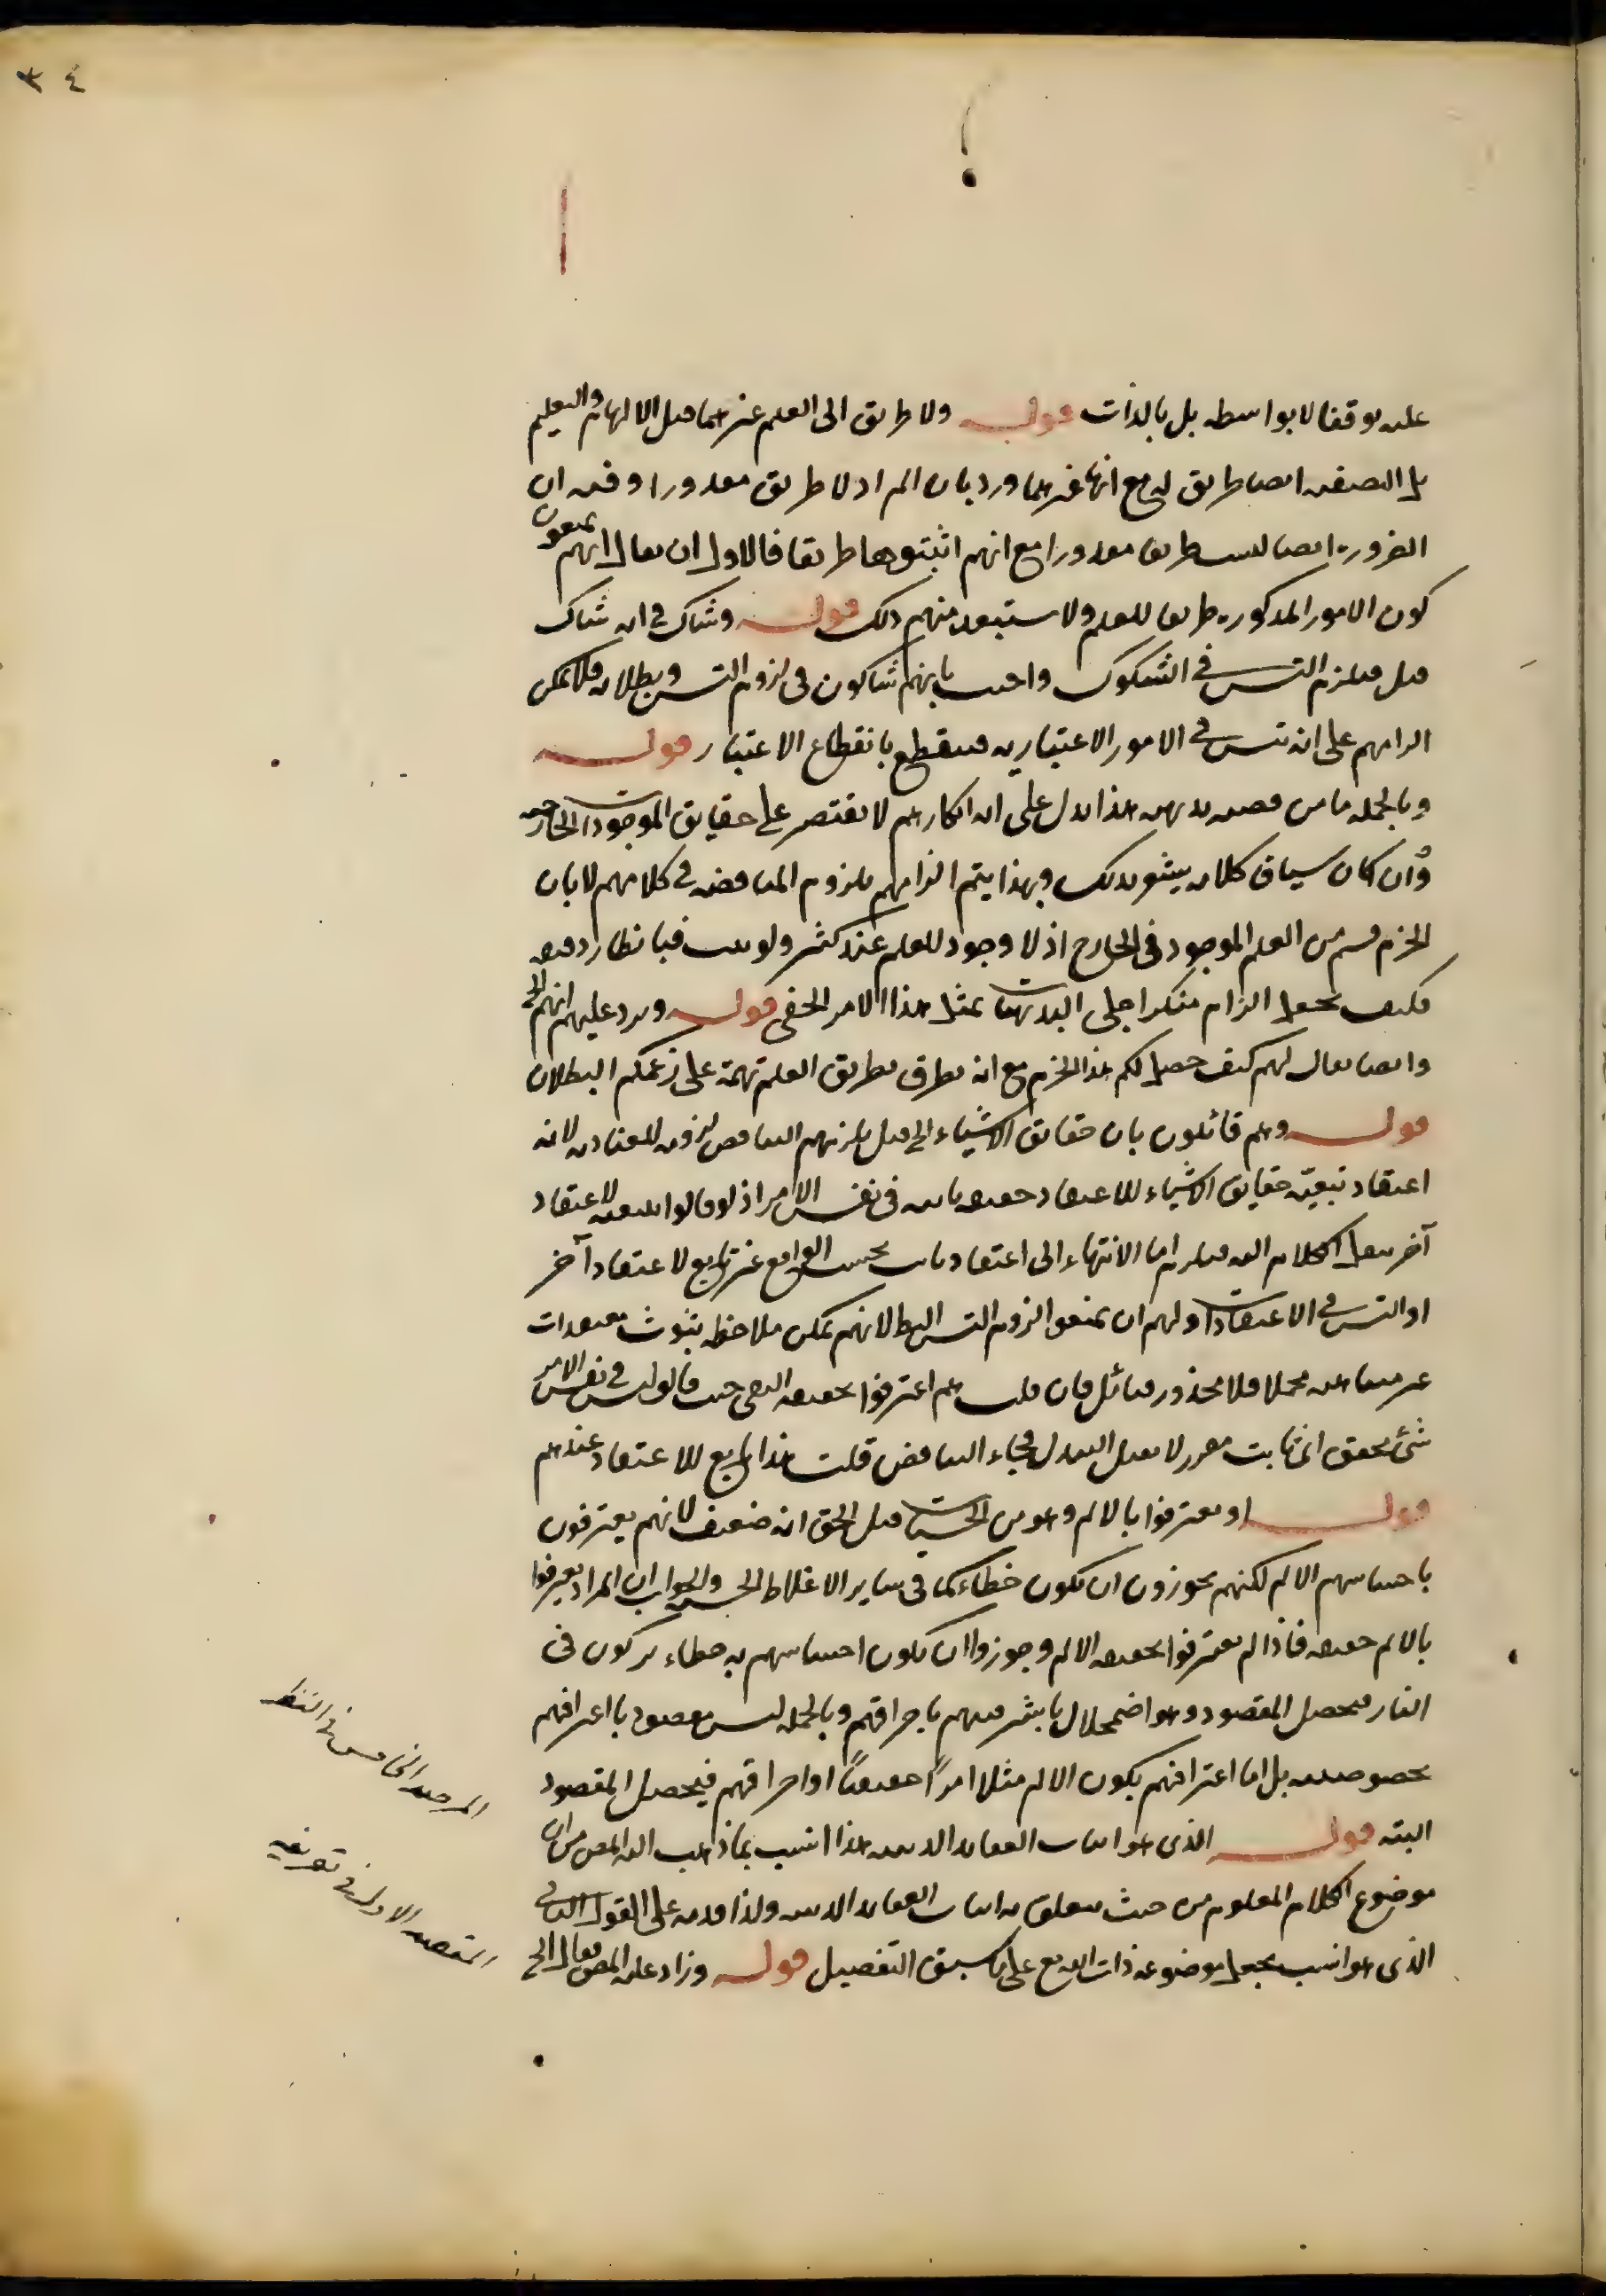 ٣٤
عليه توقفا لا بواسطه بل بالذات قوله ولا طريق الى العلم غيرهما قيل الالهام والتعليم
بل التصفيه ايضا طريق له مع انها غيرهما ورد بان المراد لا طريق مقدورا وفيه ان
الضروره ايضا ليست طريقا مقدورا مع انهم اثبتوها طريقا فالاولى ان يقال انهم يمنعون
كون الامور المذكوره طريقا للعلم ولا يستبعد منهم ذلك قوله وشاك في انه شاك
قيل فيلزم التس في الشكوك واجيب بانهم شاكون في لزوم التس وبطلانه فلا يمكن
الزامهم على انه تس في الامور الاعتباريه فينقطع بانقطاع الاعتبار قوله
وبالجمله ما من قضيه بديهيه هذا يدل على ان انكارهم لا يقتصر على حقايق الموجودات الخارجيه
وان كان سياق كلامه يشعر بذلك وبهذا يتم الزامهم بلزوم المناقضه في كلامهم لا بان
الجزم قسم من العلم الموجود في الخارج اذ لا وجود للعلم عند كثير ولو ثبت فبانظار دقيقه
فكيف يجعل الزام منكر اجلى البديهيات بمثل هذا الامر الخفي قوله ويرد عليهم انهم الخ
وايضا يقال لهم كيف حصل لكم هذا الجزم مع انه يطرق بطريق العلم تهمة على زعمكم البطلان
قوله وهم قائلون بان حقايق الاشياء الخ قيل يلزمهم التناقض لزومه للعناديه لانه
اعتقاد تبعيّة حقايق الاشياء للاعتقاد حقيقه ثابته في نفس الامر اذ لو قالوا بتبعيته لاعتقاد
آخر ينقل الكلام اليه فيلزم اما الانتهاء الى اعتقاد ثابت بحسب الواقع غير تابع لاعتقاد آخر
او التس في الاعتقادات ولهم ان يمنعوا لزوم التس البط لانهم يمكن ملاحظه ثبوت معتقدات
غير متناهيه مجملا فلا محذور فتأمل فان قلت هم اعترفوا بحقيقه النفي حيث قالوا ليس في نفس الامر
شئ بحقق اى ثابت مقرر لا يقبل التبدل فجاء التناقض قلت هذا تابع للاعتقاد عندهم
قوله او يعترفوا بالالم وهو من الحسيات قيل الحق انه ضعيف لانهم يعترفون
باحساسهم الالم لكنهم يجوزون ان يكون خطاء كما في ساير الاغلاط الحسيه والجواب ان المراد يعترفوا
بالالم حقيقه فاذا لم يعترفوا بحقيقه الالم وجوزوا ان يكون احساسهم به خطاء يتركون في
النار فيحصل المقصود وهو اضمحلال ثائرة فتنتهم باحراقهم وبالجمله ليس مقصودنا اعترافهم
بخصوصيته بل اما اعترافهم بكون الالم مثلا امراً حقيقياً او احراقهم فيحصل المقصود
البته قوله الذى هو اثبات العقايد الدينيه هذا انسب بما ذهب اليه المص من ان
موضوع الكلام المعلوم من حيث يتعلق به اثبات العقايد الدينيه ولذا قدمه على القول الثاني
الذى هو انسب بجعل موضوعه ذات الله تع على ما سبق التفصيل قوله وزاد عليه المص يقال الخ
المرصد الخامس في النظر
المقصد الاول في تعريفه